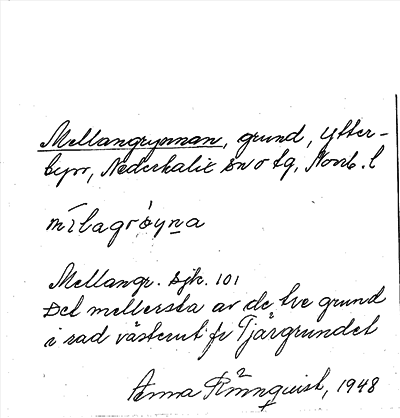 Mellangrynnan, grund, Ytter-
byn, Nederkalix sn o tg, Norrb. l
mìlagròyna
Mellangr. sjk. 101
Det mellersta av de tre grund
i rad västerut fr Tjärgrundet
Anna Rönnquist, 1948